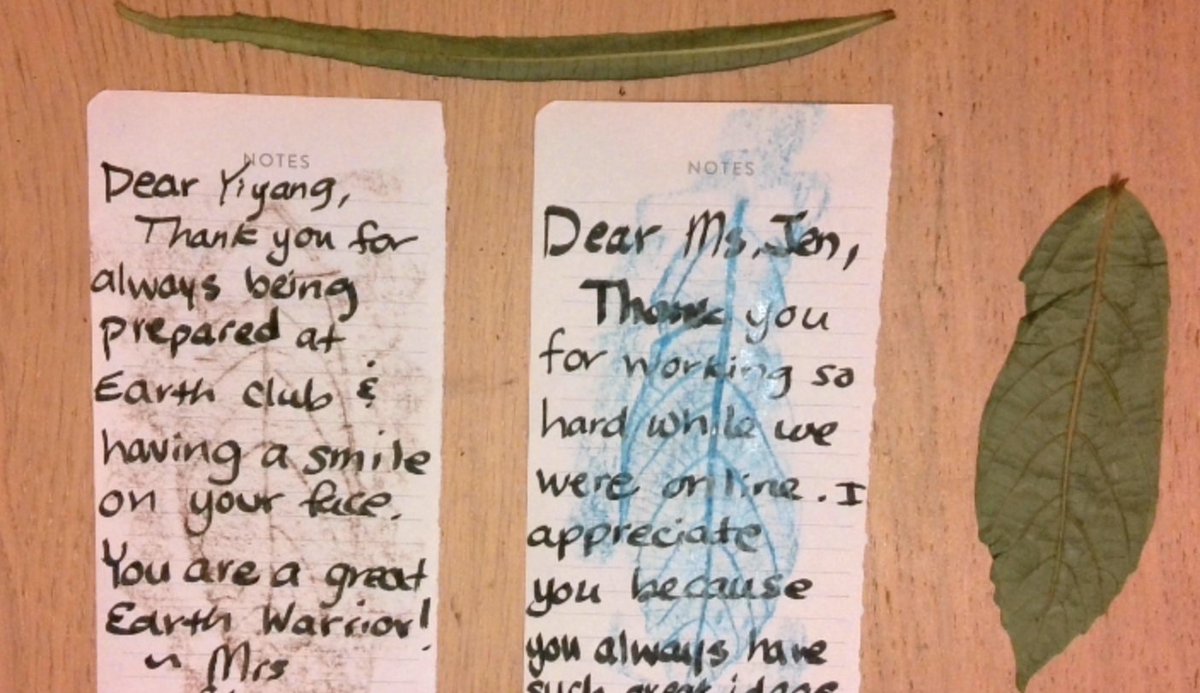 NOTES
Dear Yiyang,
Thank you for
always being
prepared at
Earth club &
having a smile
on your face.
You are a great
Earth Warrior!
~ Mrs
NOTES
Dear Ms. Jen,
Thank you
for working so
hard while we
were online. I
appreciate
you because
you always have
such great ideas